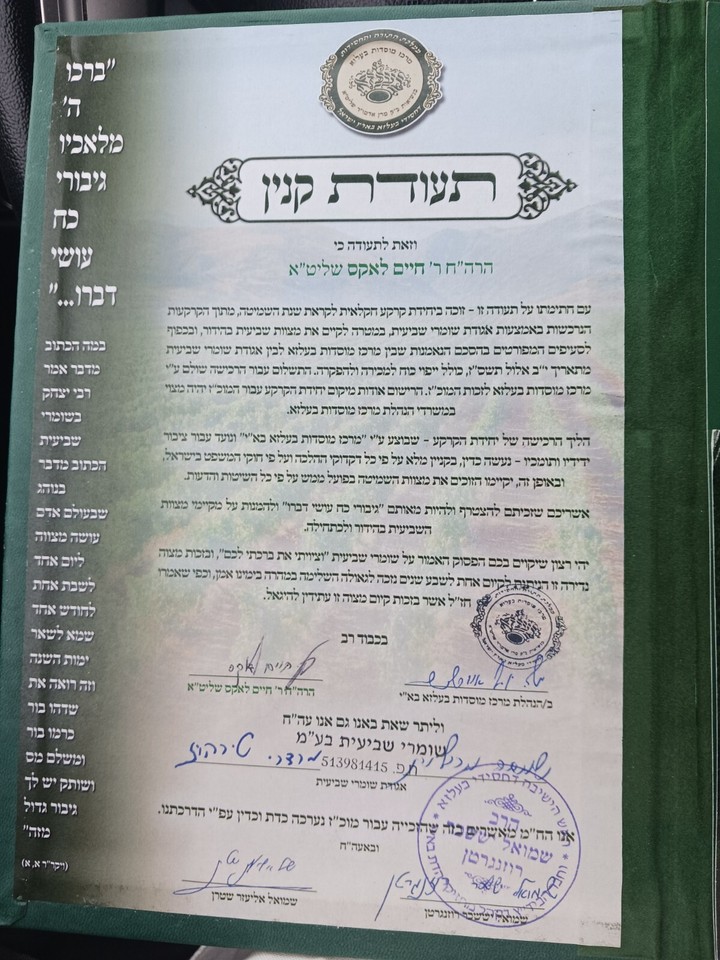 מרכז מוסדות בעלזא
תעודת קנין
וזאת לתעודה כי
הרה"ח ר' חיים לאקס שליט"א
עם חתימתו על תעודה זו – זוכה ביחידת קרקע חקלאית לקראת שנת השמיטה, מתוך הקרקעות
הנרכשות באמצעות אגודת שומרי שביעית, במטרה לקיים את מצוות שביעית בהידור, ובכפוף
לסעיפים המפורטים בהסכם הנאמנות שבין מרכז מוסדות בעלזא לבין אגודת שומרי שביעית
מתאריך י"ב אלול תשס"ז, כולל ייפוי כוח למכירה ולהפקרה. התשלום עבור הרכישה שולם ע"י
מרכז מוסדות בעלזא לזכות המוכ"ז. הרישום אודות מיקום יחידת הקרקע עבור המוכ"ז יהיה מצוי
במשרדי הנהלת מרכז מוסדות בעלזא.
הליך הרכישה של יחידת הקרקע – שבוצע ע"י "מרכז מוסדות בעלזא בא"י" ונועד עבור ציבור
ידידיו ותומכיו – נעשה כדין, בקניין מלא על פי כל דקדוקי ההלכה ועל פי חוקי המשפט בישראל,
ובאופן זה, יקיימו הזוכים את מצוות השמיטה בפועל ממש על פי כל השיטות והדעות.
אשריכם שזכיתם להצטרף ולהיות מאותם "גיבורי כח עושי דברו" ולהמנות על מקיימי מצוות
השביעית בהידור ולכתחילה.
יהי רצון שיקוים בכם הפסוק האמור על שומרי שביעית "וציויתי את ברכתי לכם", ובזכות מצוה
נדירה זו הניתנת לקיום אחת לשבע שנים נזכה לגאולה השלימה במהרה בימינו אמן, וכפי שאמרו
חז"ל אשר בזכות קיום מצוה זו עתידין להיגאל.
בכבוד רב
ב/הנהלת מרכז מוסדות בעלזא בא"י
הרה"ח ר' חיים לאקס שליט"א
וליתר שאת באנו גם אנו עה"ח
שומרי שביעית בע"מ
ח.פ. 513981415
אגודת שומרי שביעית
אנו הח"מ מאשרים בזה שהזכייה עבור מוכ"ז נערכה כדת וכדין עפ"י הדרכתנו.
ובאעה"ח
הרב
שמואל יששכר
רוזנגרטן
שמואל יששכר רוזנגרטן
שמואל אליעזר שטרן
"ברכו
ה'
מלאכיו
גיבורי
כח
עושי
דברו..."
במה הכתוב
מדבר אמר
רבי יצחק
בשומרי
שביעית
הכתוב מדבר
בנוהג
שבעולם אדם
עושה מצווה
ליום אחד
לשבת אחת
לחודש אחד
שמא לשאר
ימות השנה
וזה רואה את
שדהו בור
כרמו בור
ומשלם מס
ושותק יש לך
גיבור גדול
מזה"
(ויקר"ר א, א)